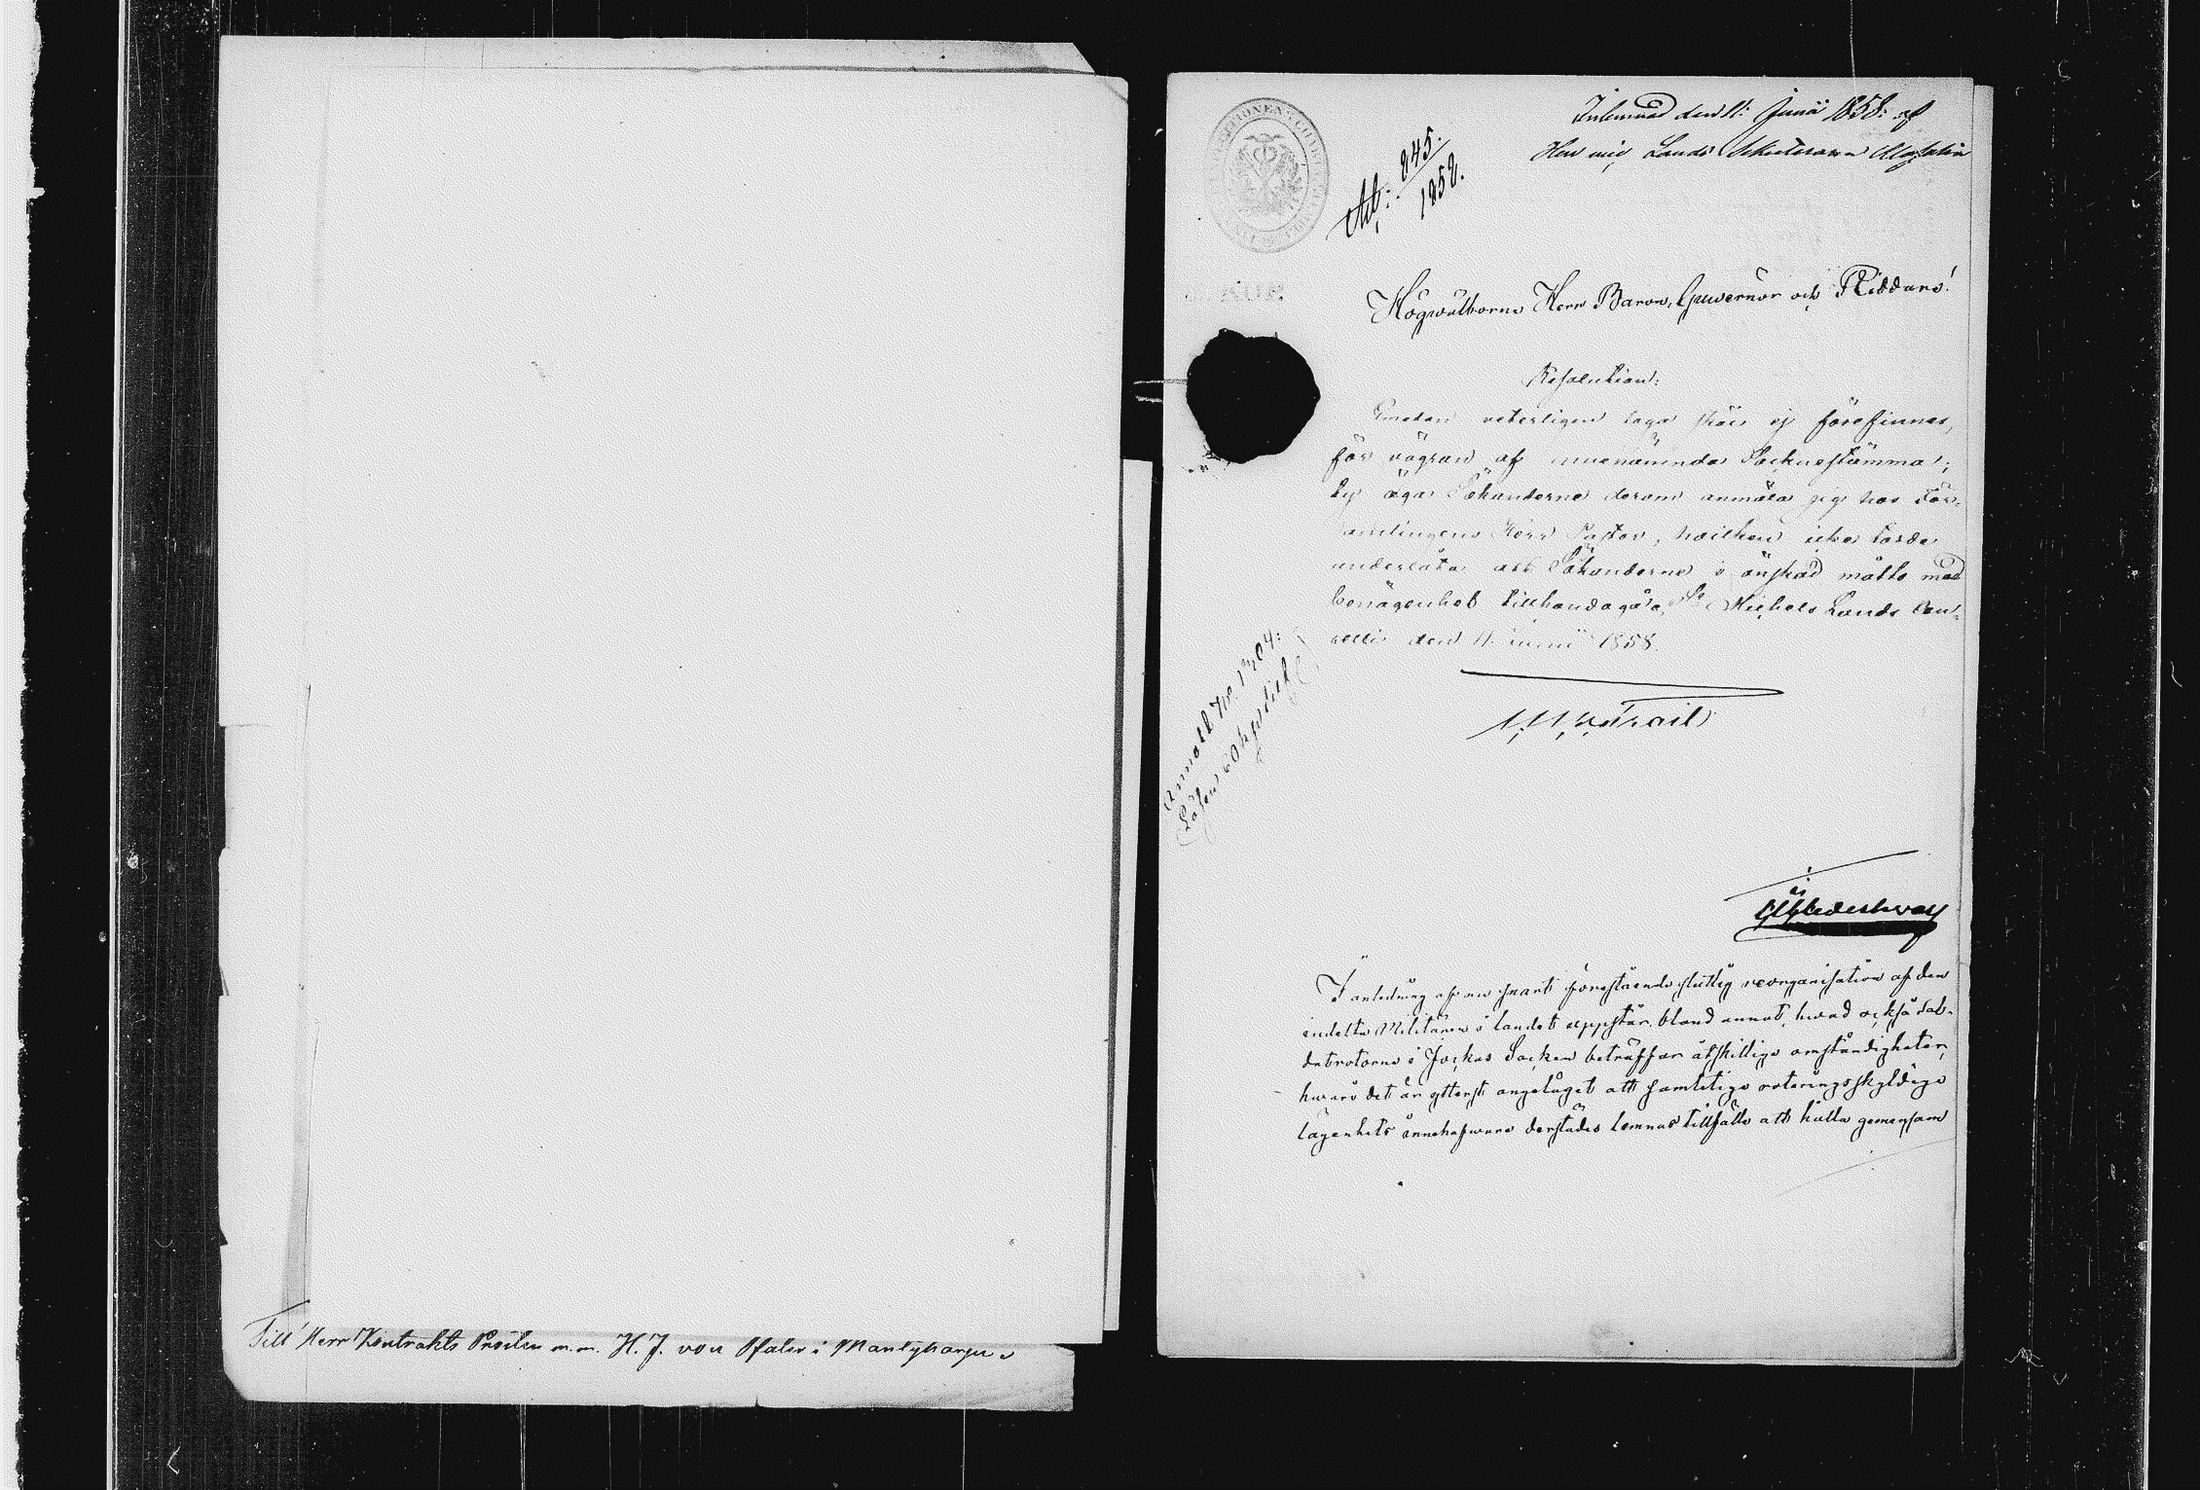 Till Herr Kontrakts Prosten m.m. H. J. von Pfaler i Mäntyharju
Inlemnad den 11: Junii 1858: af
Herr Lands Sekreteraren
Att: 845.
1858.
Högwälborne Herr Baron, Guvernör och Riddare!
Resolution:
Emedan veterligen laga skäl ej förefinnes,
för vägran af Sockenstämma;
ty äga Sökanderne derom anmäla sig hos För-
samlingens Herr Pastor, hvilken icke torde
underlåta att Sökanderne i önskad måtto med
benägenhet tillhandagå. St Michels Lands Can-
celli den 11 Junii 1858.
Anmält No. 1304:
Lösen 60 kop. silf.
I anledning af nu snart förestående slutlig reorganisation af den
indelta Militären i landet uppstår, bland annat, hwad också sol-
datrotarne i Jockas Socken beträffar åtskillige omständigheter,
hwaröf det är ytterst angelägit att samtelige roteringsskyldige
lägenhets innehafware derstädes lemnas tillfälle att hålla gemensam